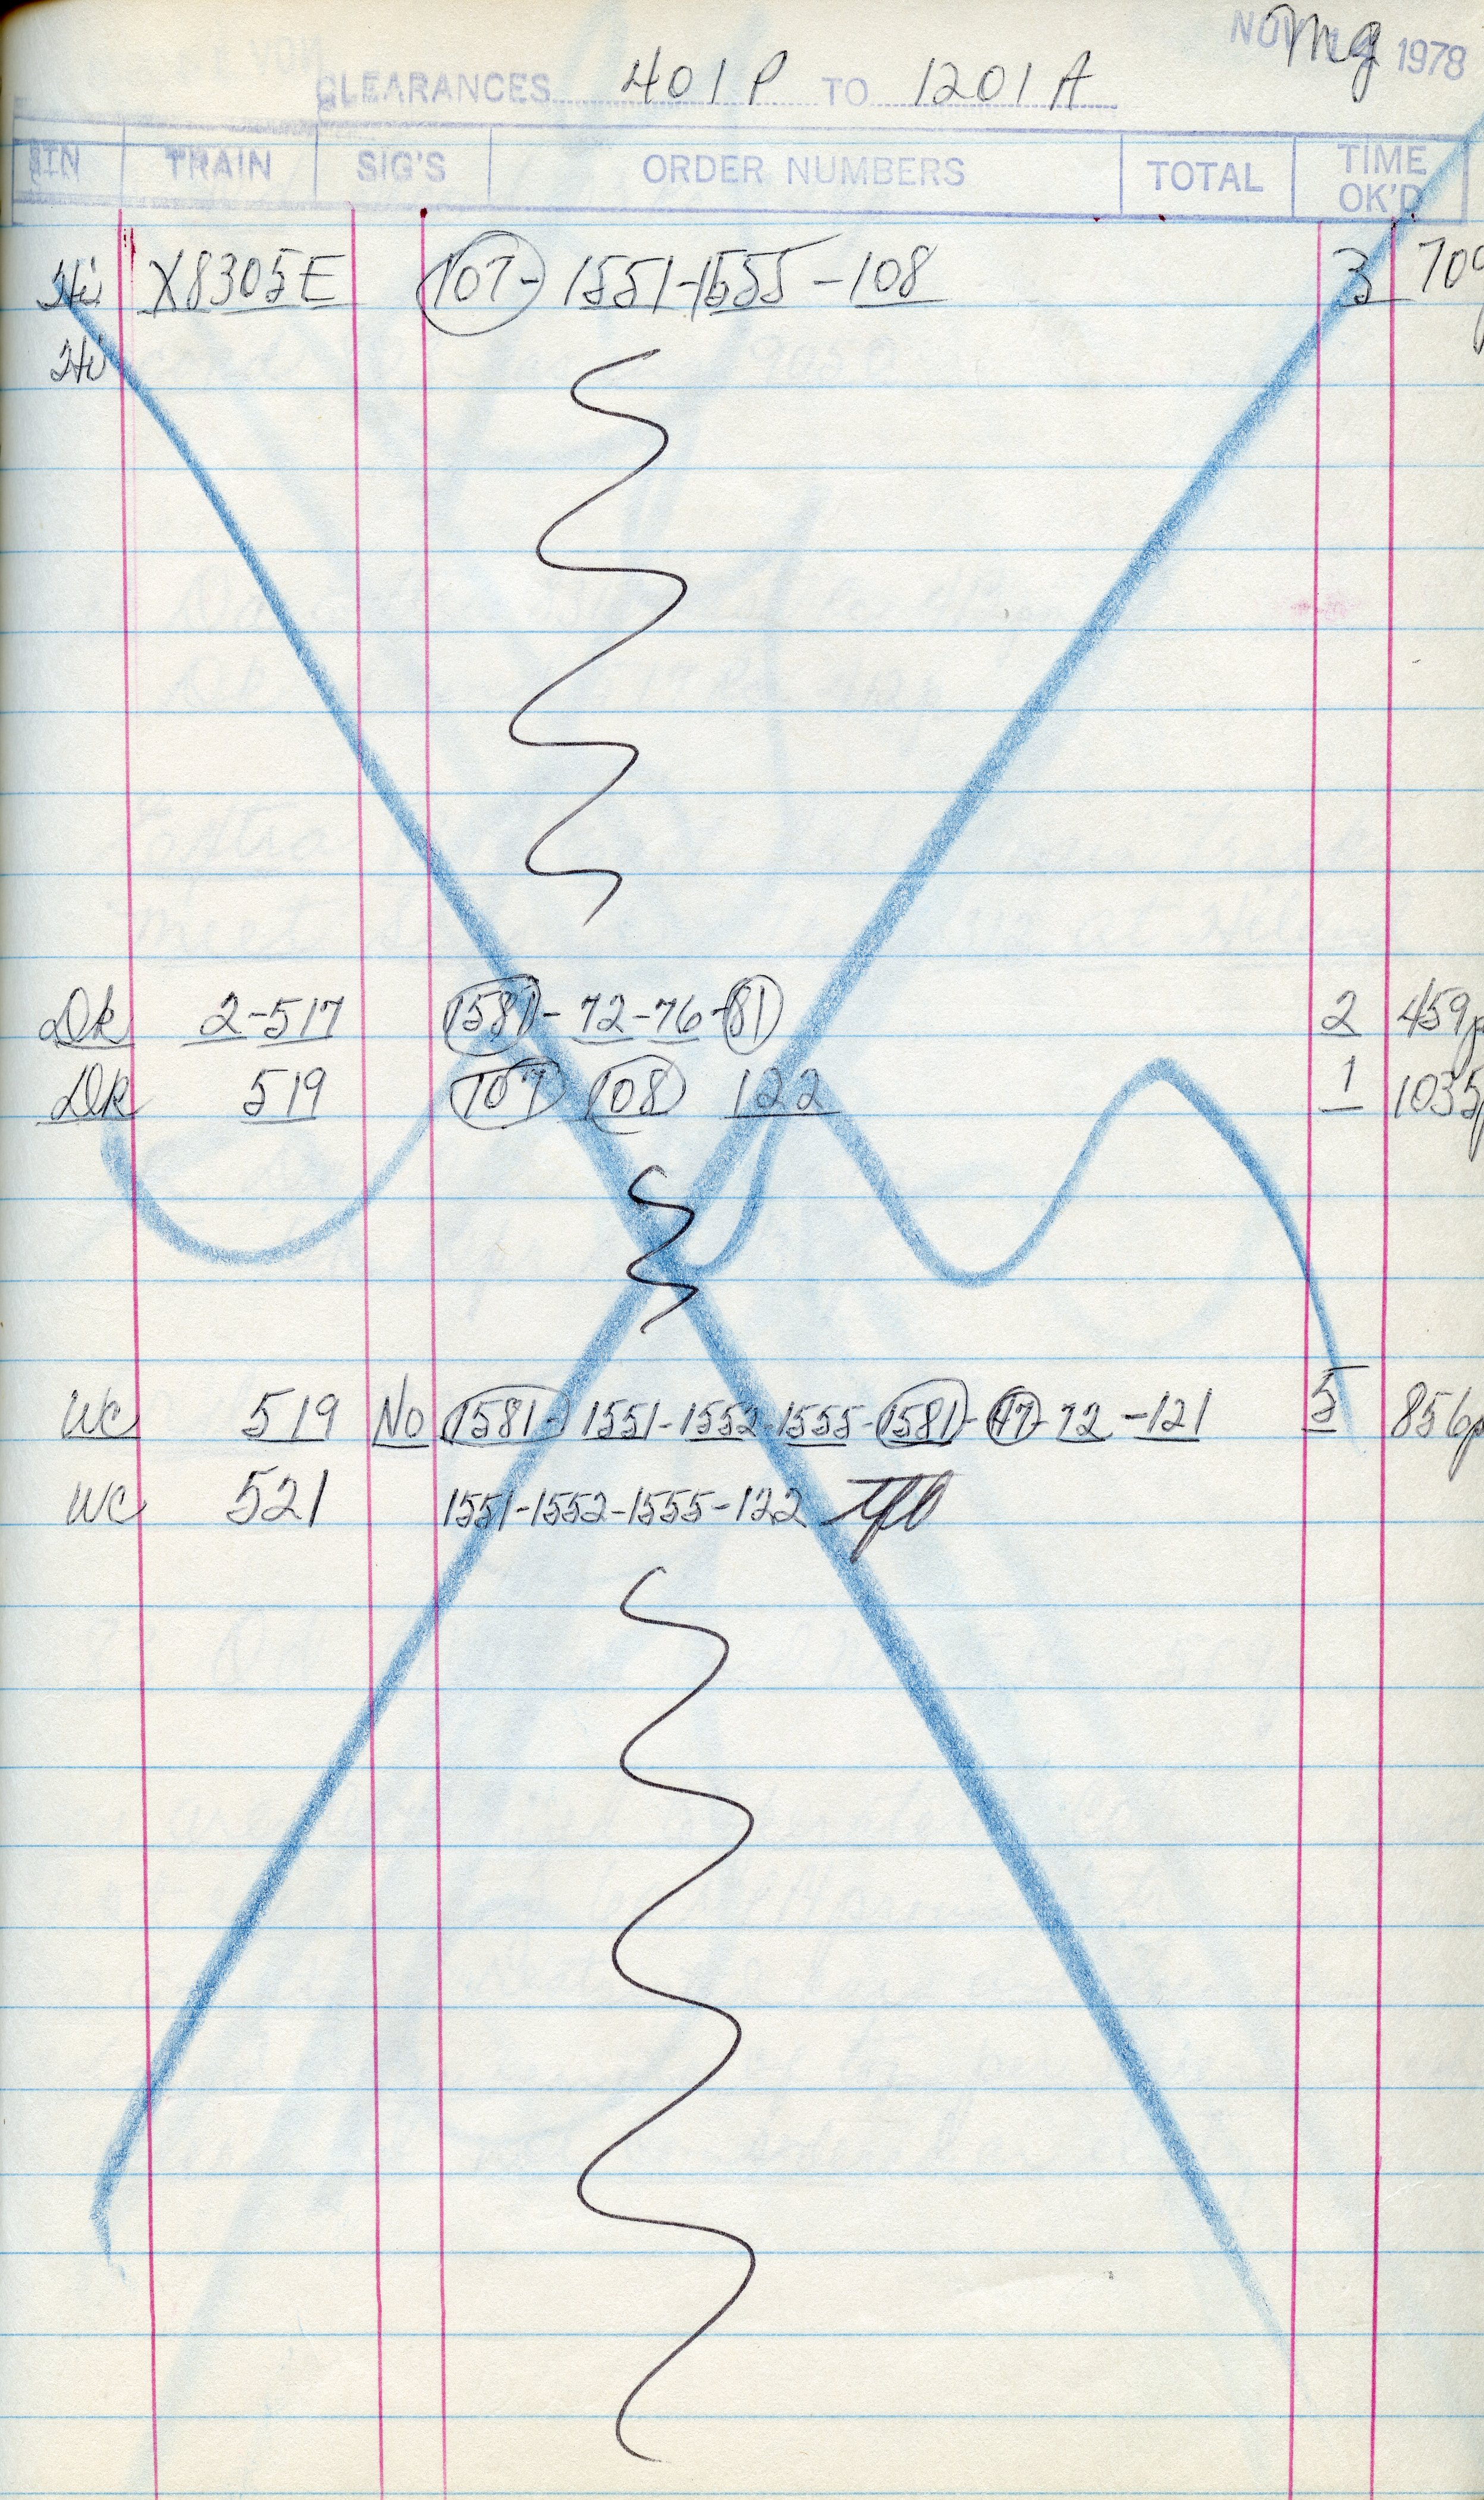 NOV 1978
mg
CLEARANCES 401 P TO 1201 A
STN TRAIN SIG'S ORDER NUMBERS TOTAL TIME OK'D
Hi X8305E 107- 1551-1555-108 3 709
Hi
Dk 2-517 1581-72-76-81 2 459p
Dk 519 107 108 122 1 1035p
WC 519 No 1581- 1551-1552-1555-1581-77-72-121 5 856p
WC 521 1551-1552-1555-122